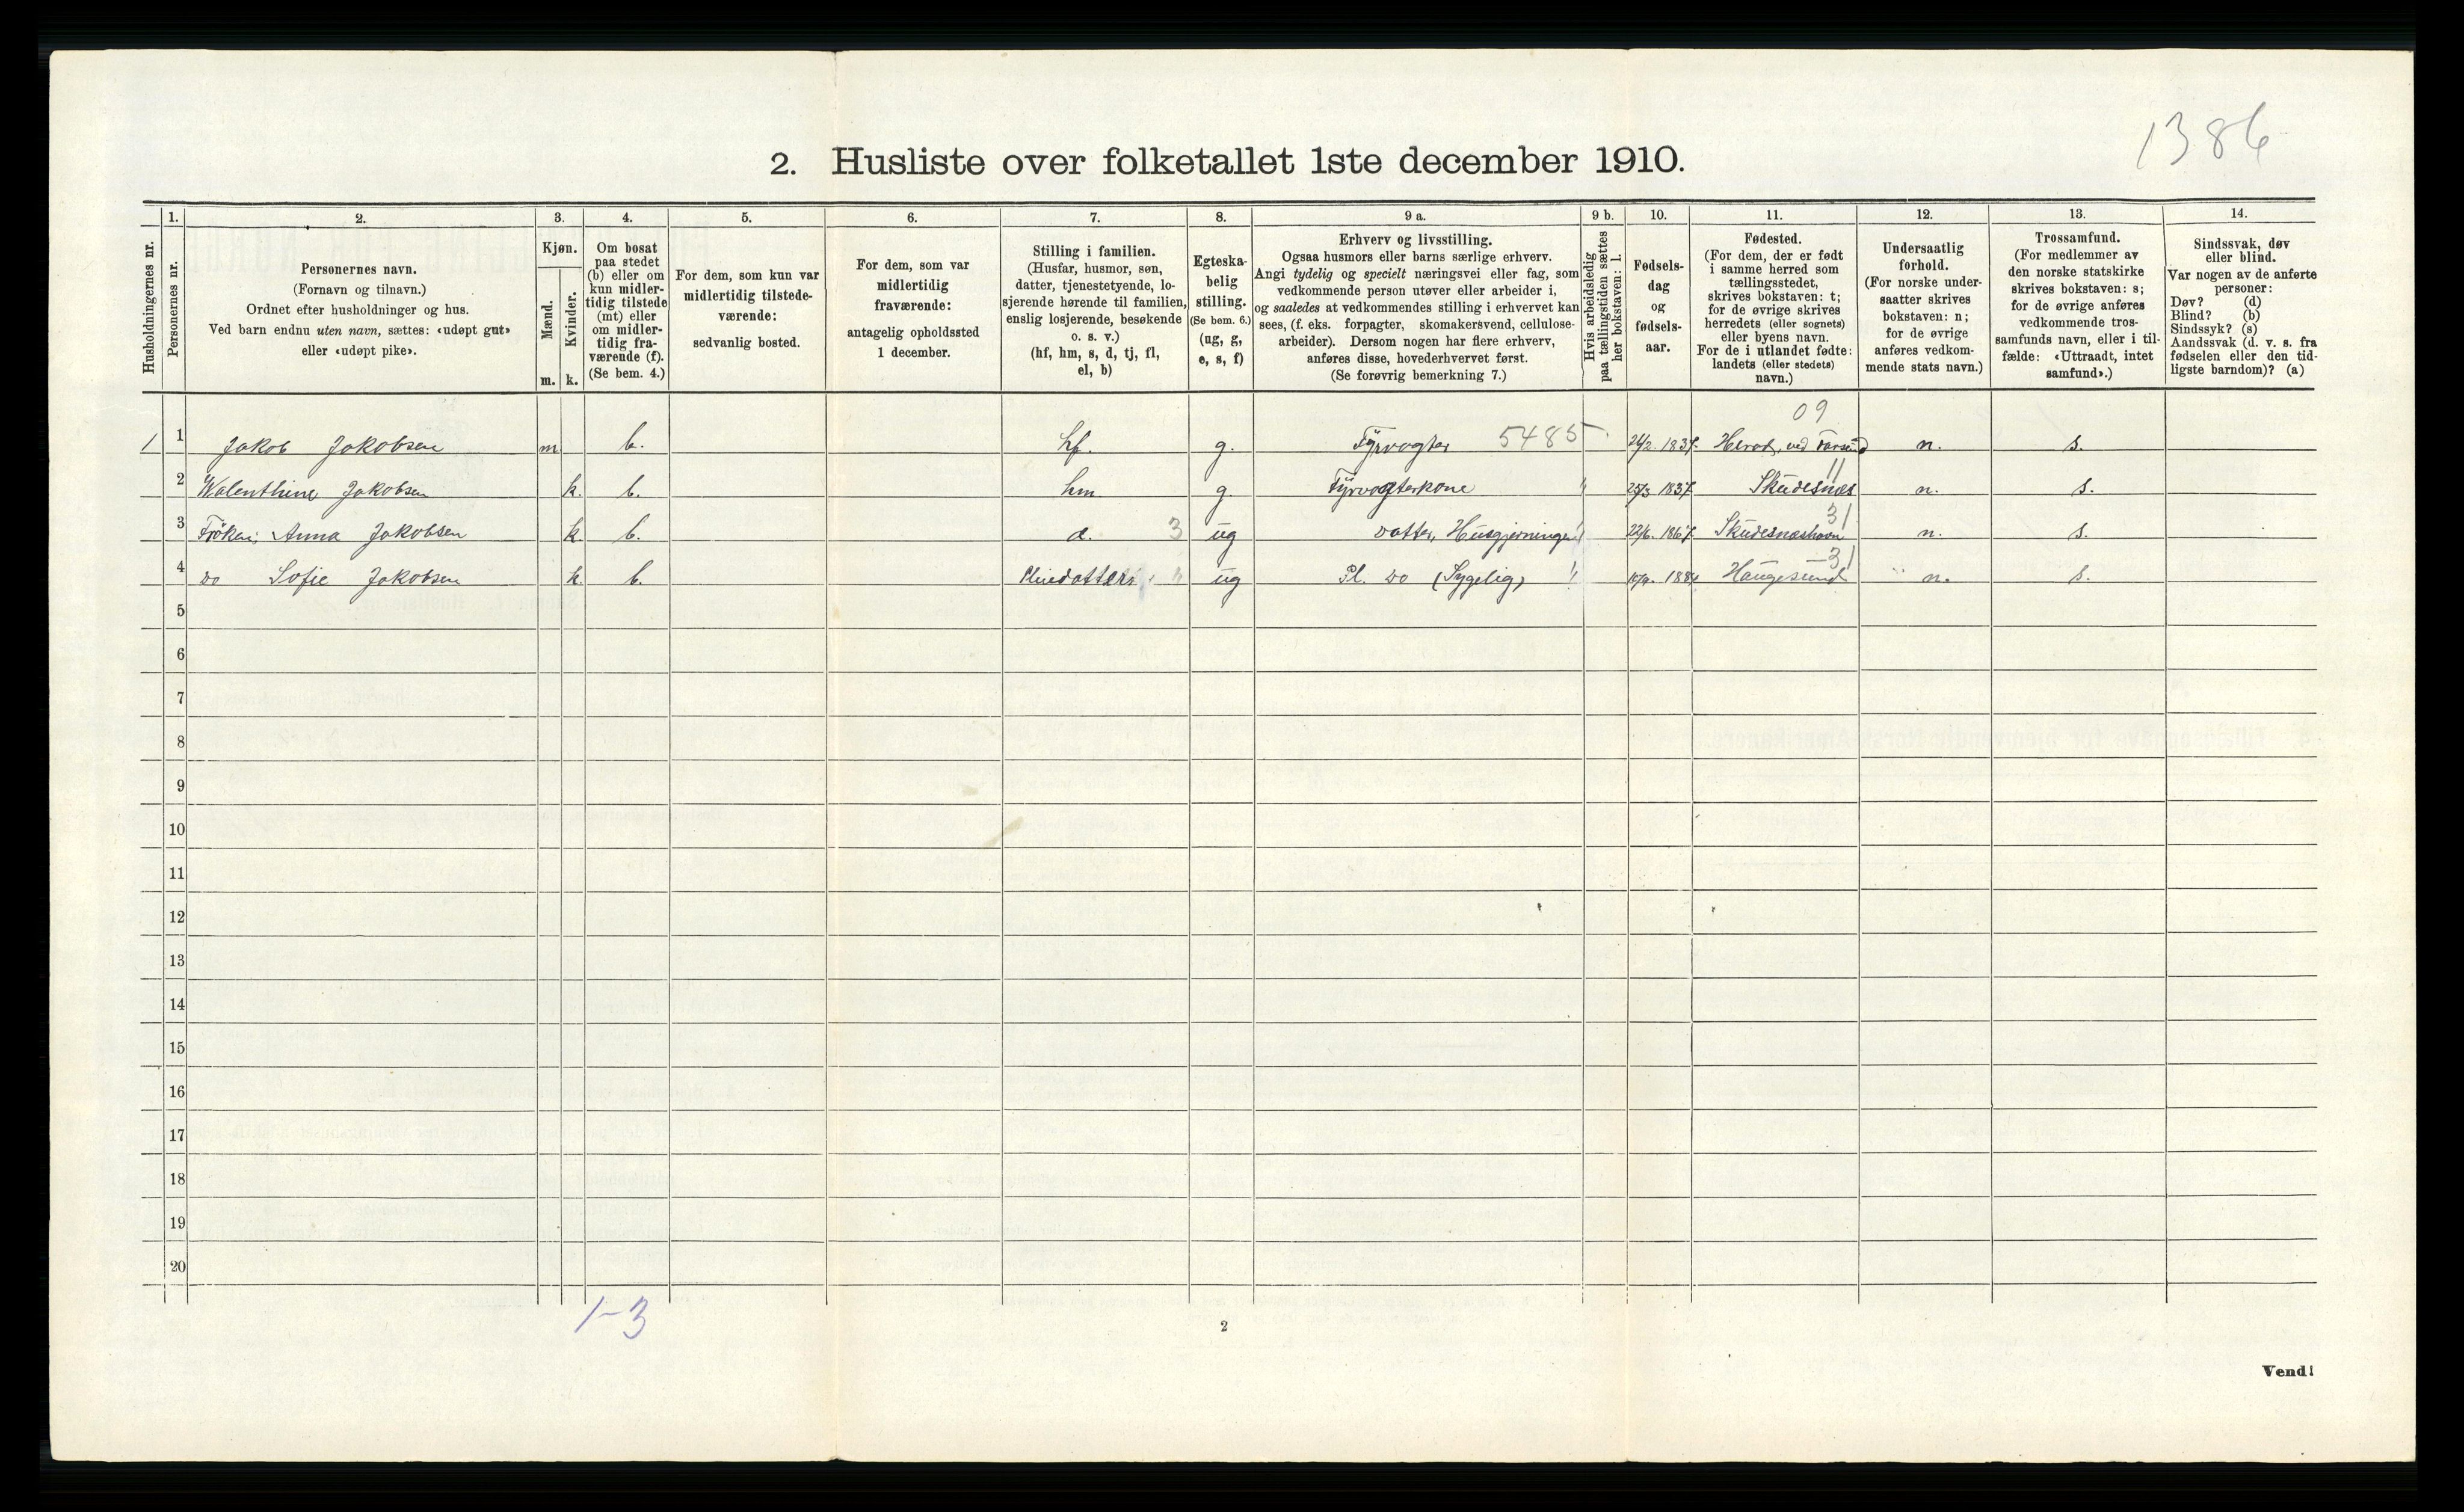 1386
2. Husliste over folketallet 1ste december 1910.
Husholdningernes nr.
1.
Personernes nr.
2.
Personernes navn.
(Fornavn og tilnavn.)
Ordnet efter husholdninger og hus.
Ved barn endnu uten navn, sættes: «udøpt gut»
eller «udøpt pike».
3.
Kjøn.
Mænd.
Kvinder.
m. k.
4.
Om bosat
paa stedet
(b) eller om
kun midler-
tidig tilstede
(mt) eller
om midler-
tidig fra-
værende (f).
(Se bem. 4.)
5.
For dem, som kun var
midlertidig tilstede-
værende:
sedvanlig bosted.
6.
For dem, som var
midlertidig
fraværende:
antagelig opholdssted
1 december.
7.
Stilling i familien.
(Husfar, husmor, søn,
datter, tjenestetyende, lo-
sjerende hørende til familien,
enslig losjerende, besøkende
o. s. v.)
(hf, hm, s, d, tj, fl,
el, b)
8.
Egteska-
belig
stilling.
(Se bem. 6.)
(ug, g,
e, s, f)
9 a.
Erhverv og livsstilling.
Ogsaa husmors eller barns særlige erhverv.
Angi tydelig og specielt næringsvei eller fag, som
vedkommende person utøver eller arbeider i,
og saaledes at vedkommendes stilling i erhvervet kan
sees, (f. eks. forpagter, skomakersvend, cellulose-
arbeider). Dersom nogen har flere erhverv,
anføres disse, hovederhvervet først.
(Se forøvrig bemerkning 7.)
9 b.
Hvis arbeidsledig
paa tællingstiden sættes
her bokstaven: l.
10.
Fødsels-
dag
og
fødsels-
aar.
11.
Fødested.
(For dem, der er født
i samme herred som
tællingsstedet,
skrives bokstaven: t;
for de øvrige skrives
herredets (eller sognets)
eller byens navn.
For de i utlandet fødte:
landets (eller stedets)
navn.)
12.
Undersaatlig
forhold.
(For norske under-
saatter skrives
bokstaven: n;
for de øvrige
anføres vedkom-
mende stats navn.)
13.
Trossamfund.
(For medlemmer av
den norske statskirke
skrives bokstaven: s;
for de øvrige anføres
vedkommende tros-
samfunds navn, eller i til-
fælde: «Uttraadt, intet
samfund».)
14.
Sindssvak, døv
eller blind.
Var nogen av de anførte
personer:
Døv? (d)
Blind? (b)
Sindssyk? (s)
Aandssvak (d. v. s. fra
fødselen eller den tid-
ligste barndom)? (a)
09
1 1 Jakob Jakobsen m b. hf. g. Fyrvogter 5485 24/2 1837 Herad, ved Farsund n. s.
11
2 Walenthine Jakobsen k. b. hm g. Fyrvogterkone " 25/3 1837 Skudesnæs n. s.
31
3 Frøken, Anna Jakobsen k. b. d. 3 ug Datter, Husgjerninger 22/6. 1867 Skudesnæshavn n. s.
31
4 Do Sofie Jakobsen k. b. Pleiedatter " ug Pl. Do (Sygelig) " 1884 Haugesund n. s.
5
6
7
8
9
10
11
12
13
14
15
16
17
18
19
20
1-3
2
Vend!